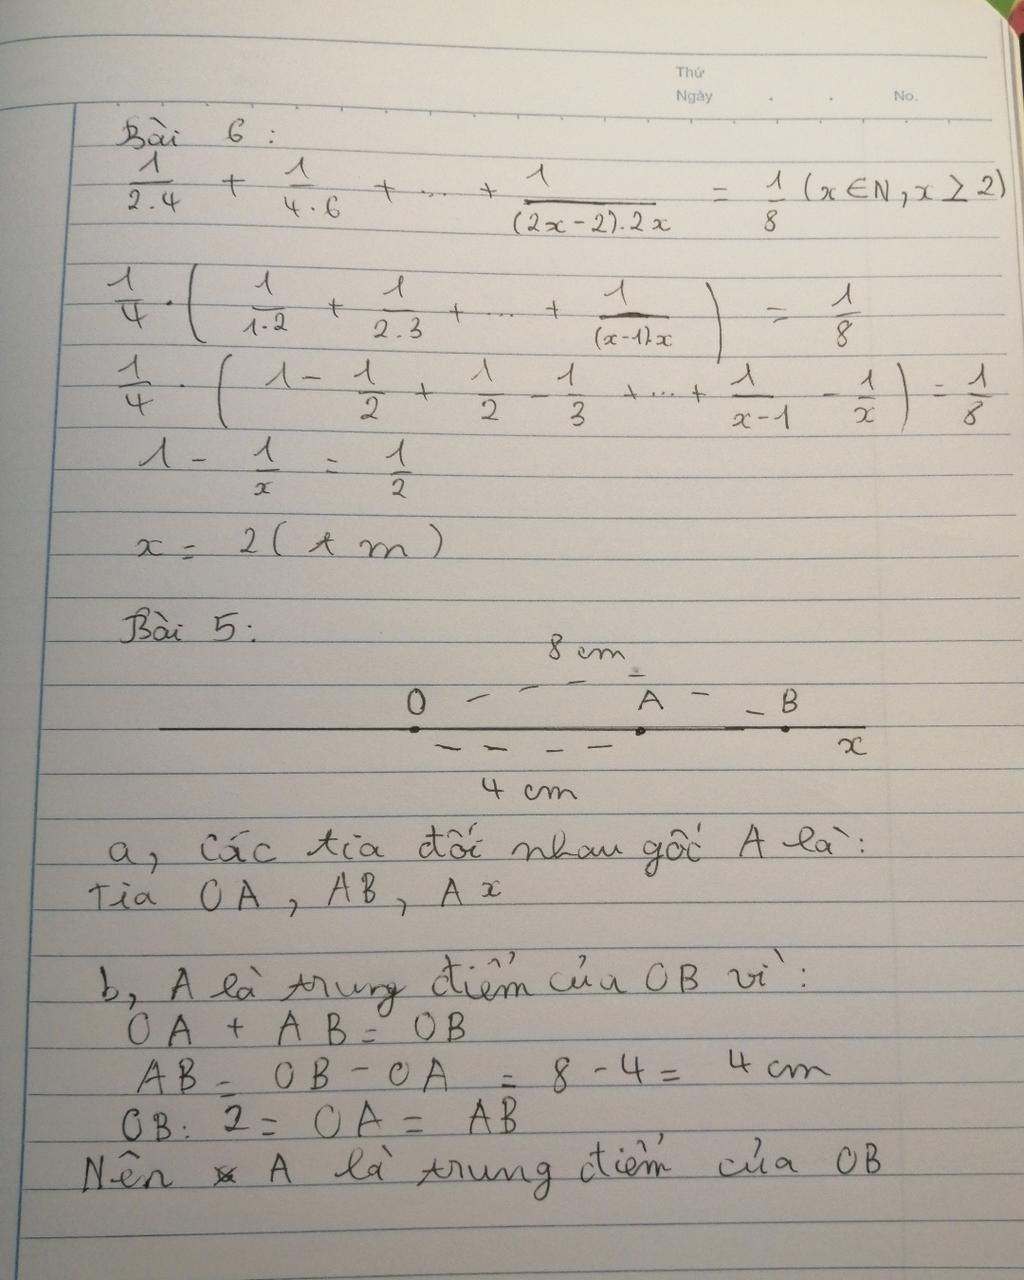 Thứ
Ngày . . No.
Bài 6 :
1/2.4 + 1/4.6 + ... + 1/(2x-2).2x = 1/8 (x ∈ N, x ≥ 2)
1/4 . ( 1/1.2 + 1/2.3 + ... + 1/(x-1).x ) = 1/8
1/4 . ( 1 - 1/2 + 1/2 - 1/3 + ... + 1/x-1 - 1/x ) = 1/8
1 - 1/x = 1/2
x = 2 ( t m )
Bài 5 :
8 cm
O A B
x
4 cm
a, Các tia đối nhau gốc A là :
Tia OA , AB , Ax
b, A là trung điểm của OB vì :
OA + AB = OB
AB = OB - OA = 8 - 4 = 4 cm
OB : 2 = OA = AB
Nên A là trung điểm của OB